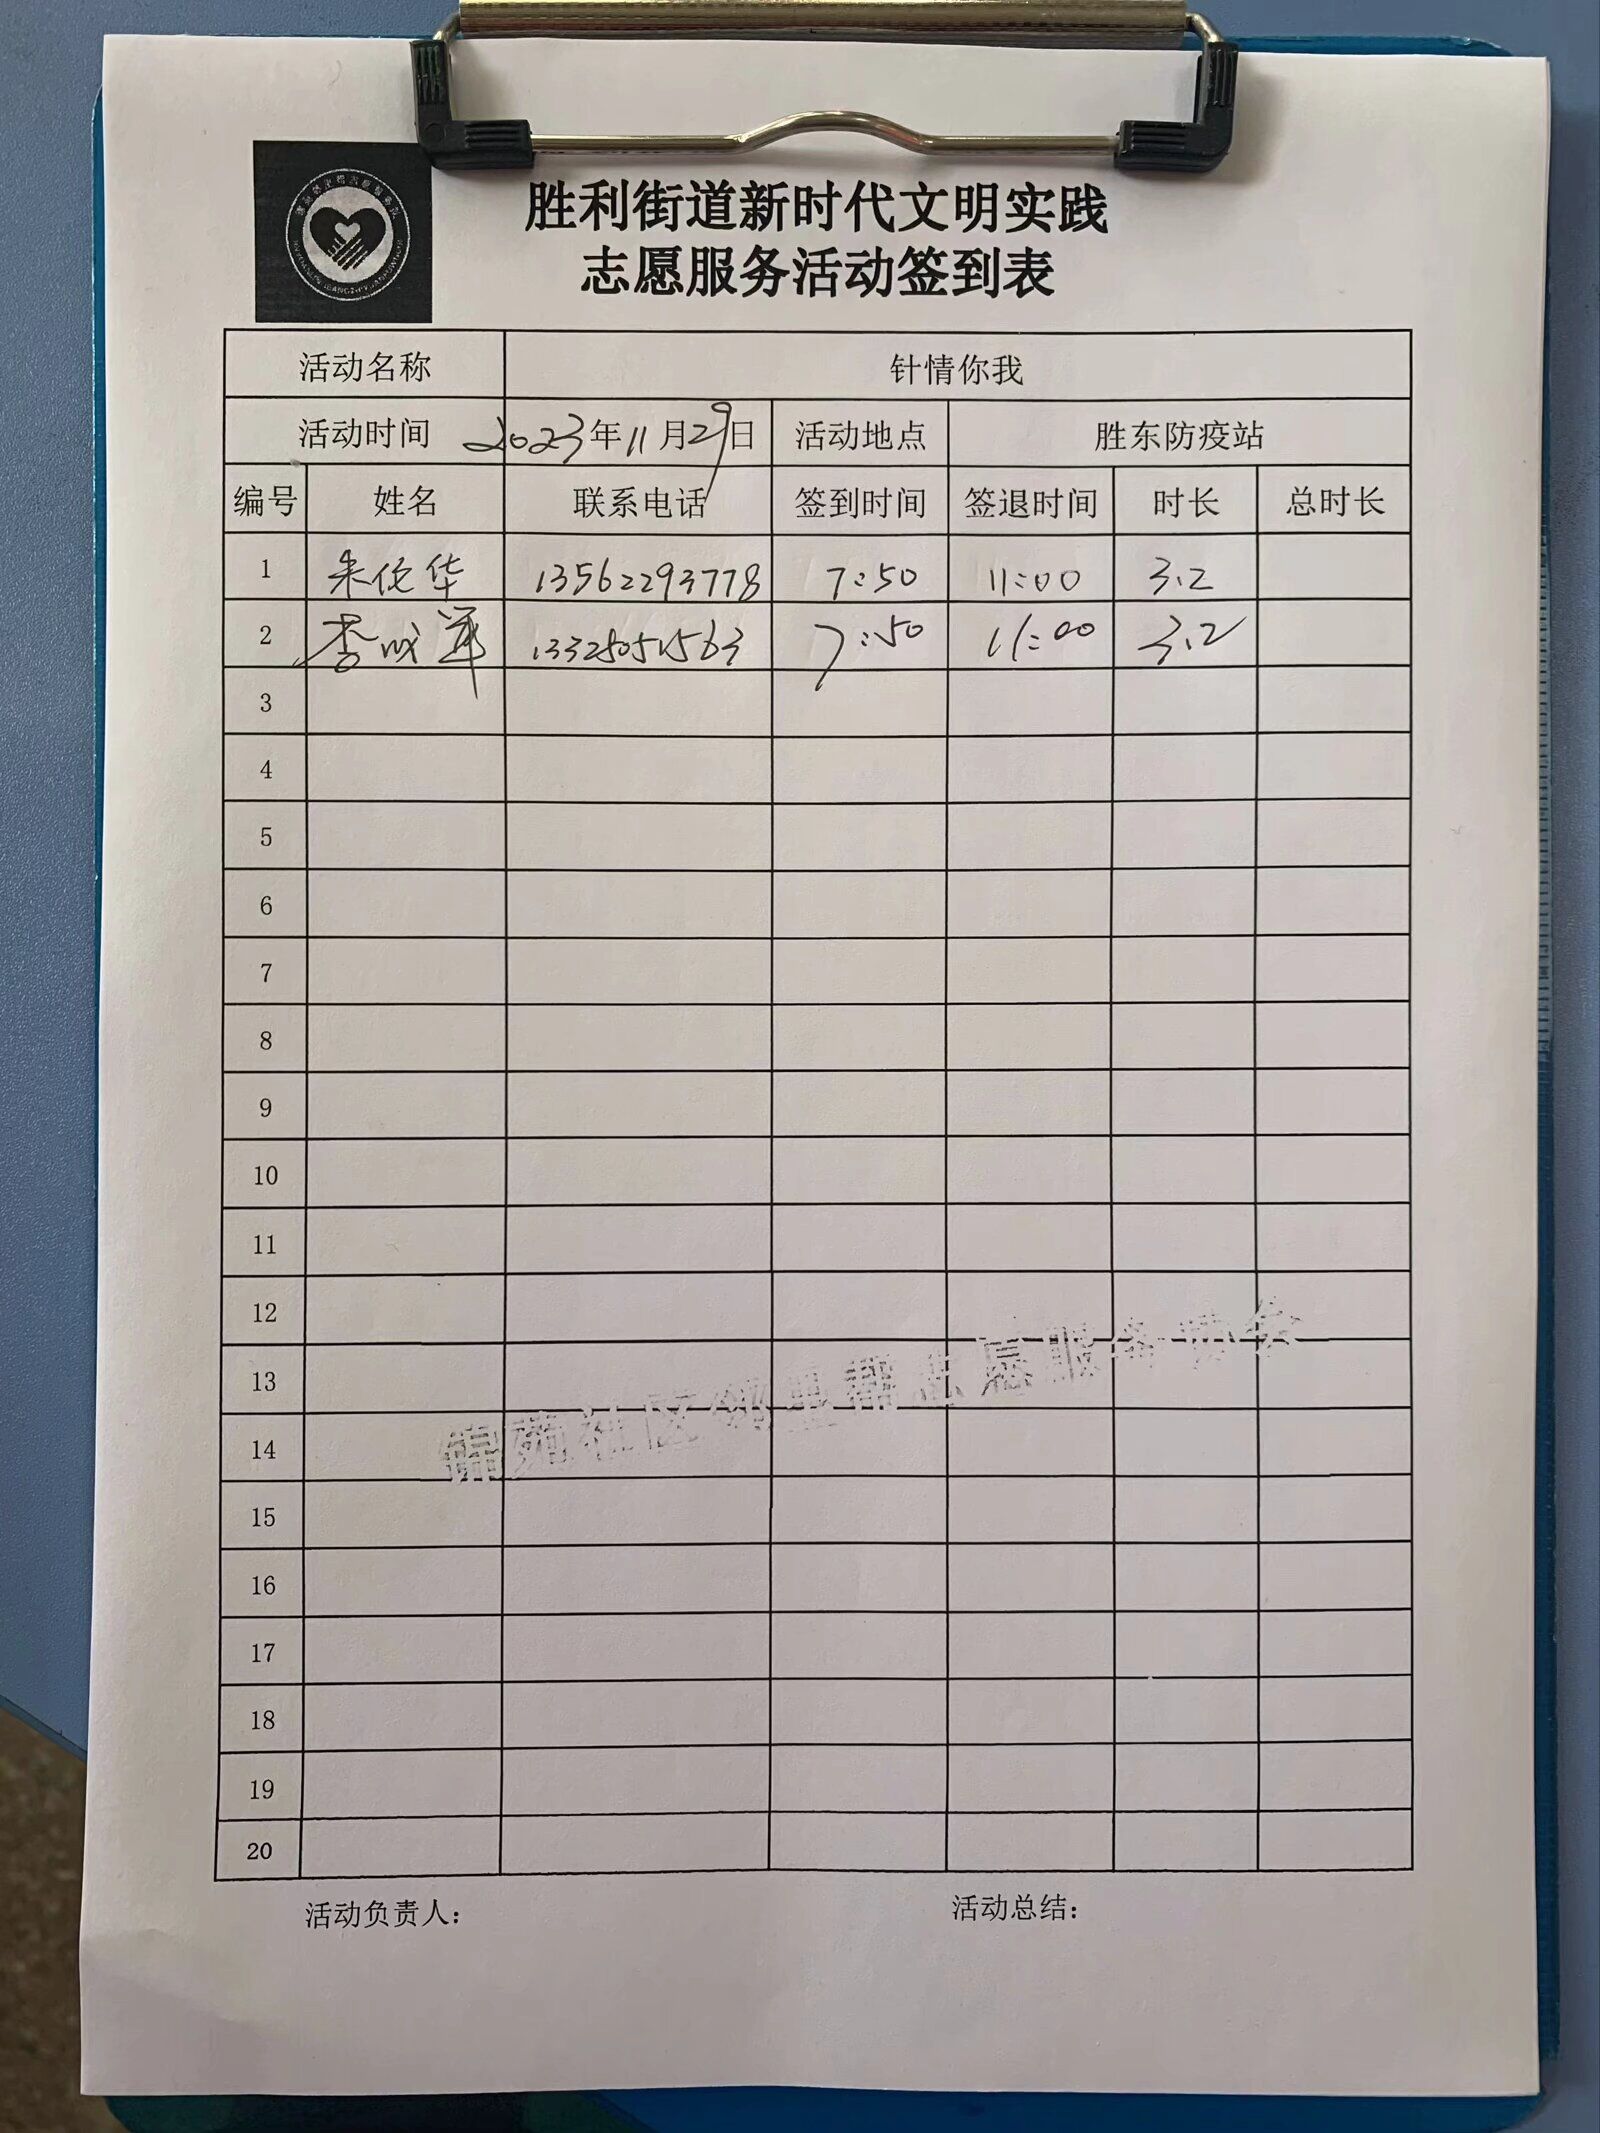 胜利街道新时代文明实践
志愿服务活动签到表
活动名称 针情你我
活动时间 2023年11月29日 活动地点 胜东防疫站
编号 姓名 联系电话 签到时间 签退时间 时长 总时长
1 朱佗华 13562293778 7:50 11:00 3.2
2 李成军 13325051563 7:50 11:00 3.2
3
4
5
6
7
8
9
10
11
12
13
14
15
16
17
18
19
20
锦苑社区 志愿服务协会
活动负责人: 活动总结: